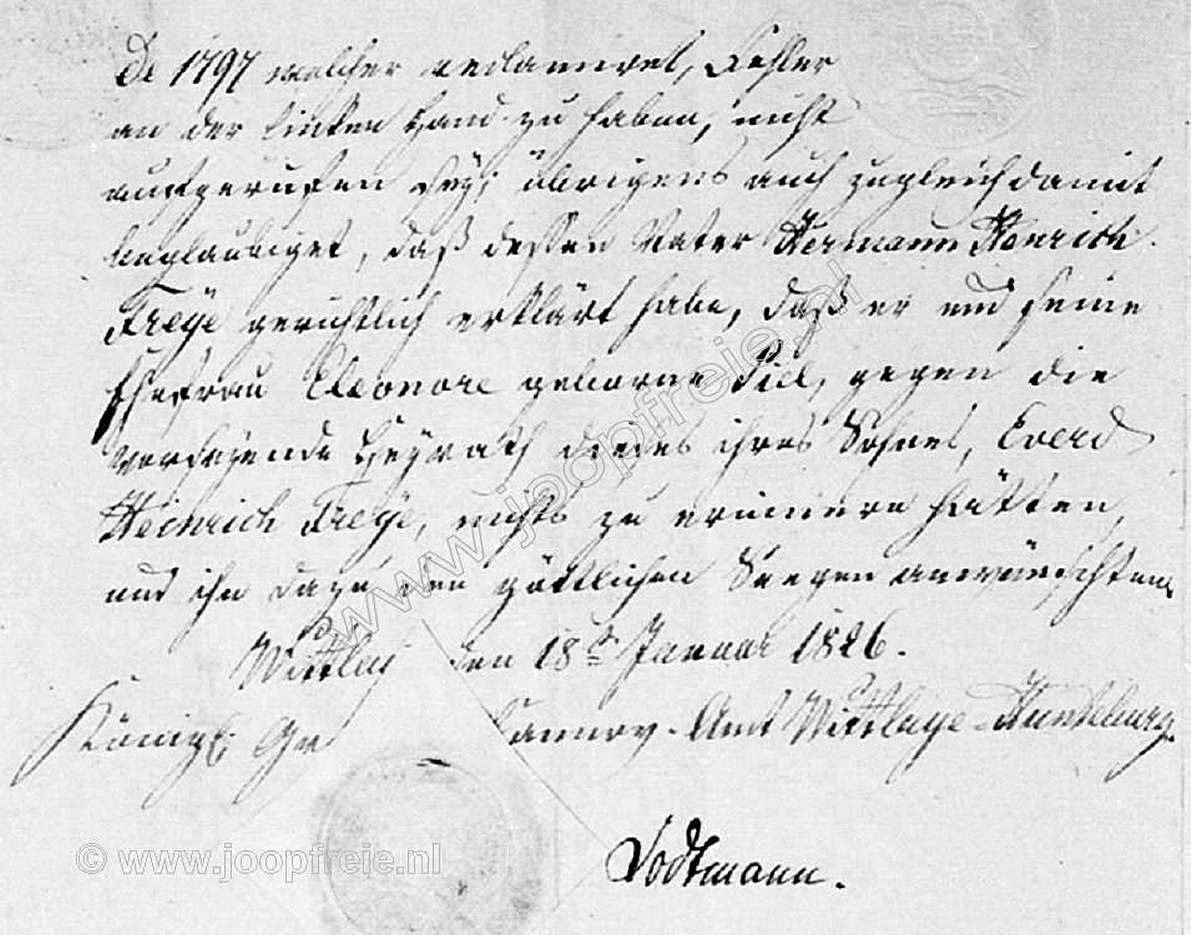 De 1797 welcher reclamiret, Fehler
an der linken Hand zu haben, nicht
aufgerufen sey; übrigens auch zugleich damit
beglaubiget, daß dessen Vater Hermann Henrich
Freÿe gerichtlich erklärt habe, daß er und seine
Ehefrau Eleonore geborne Piel, gegen die
vorseyende Heyrath dieses ihres Sohnes, Everd
Heinrich Freÿe, nichts zu erinnern hätten,
und ihn dazu den göttlichen Seegen anwünschten.
Wittlage den 18ten Januar 1826.
Königl. Gr Hannov. Amt Wittlage-Hunteburg.
Lodtmann.
www.joopfreie.nl
© www.joopfreie.nl